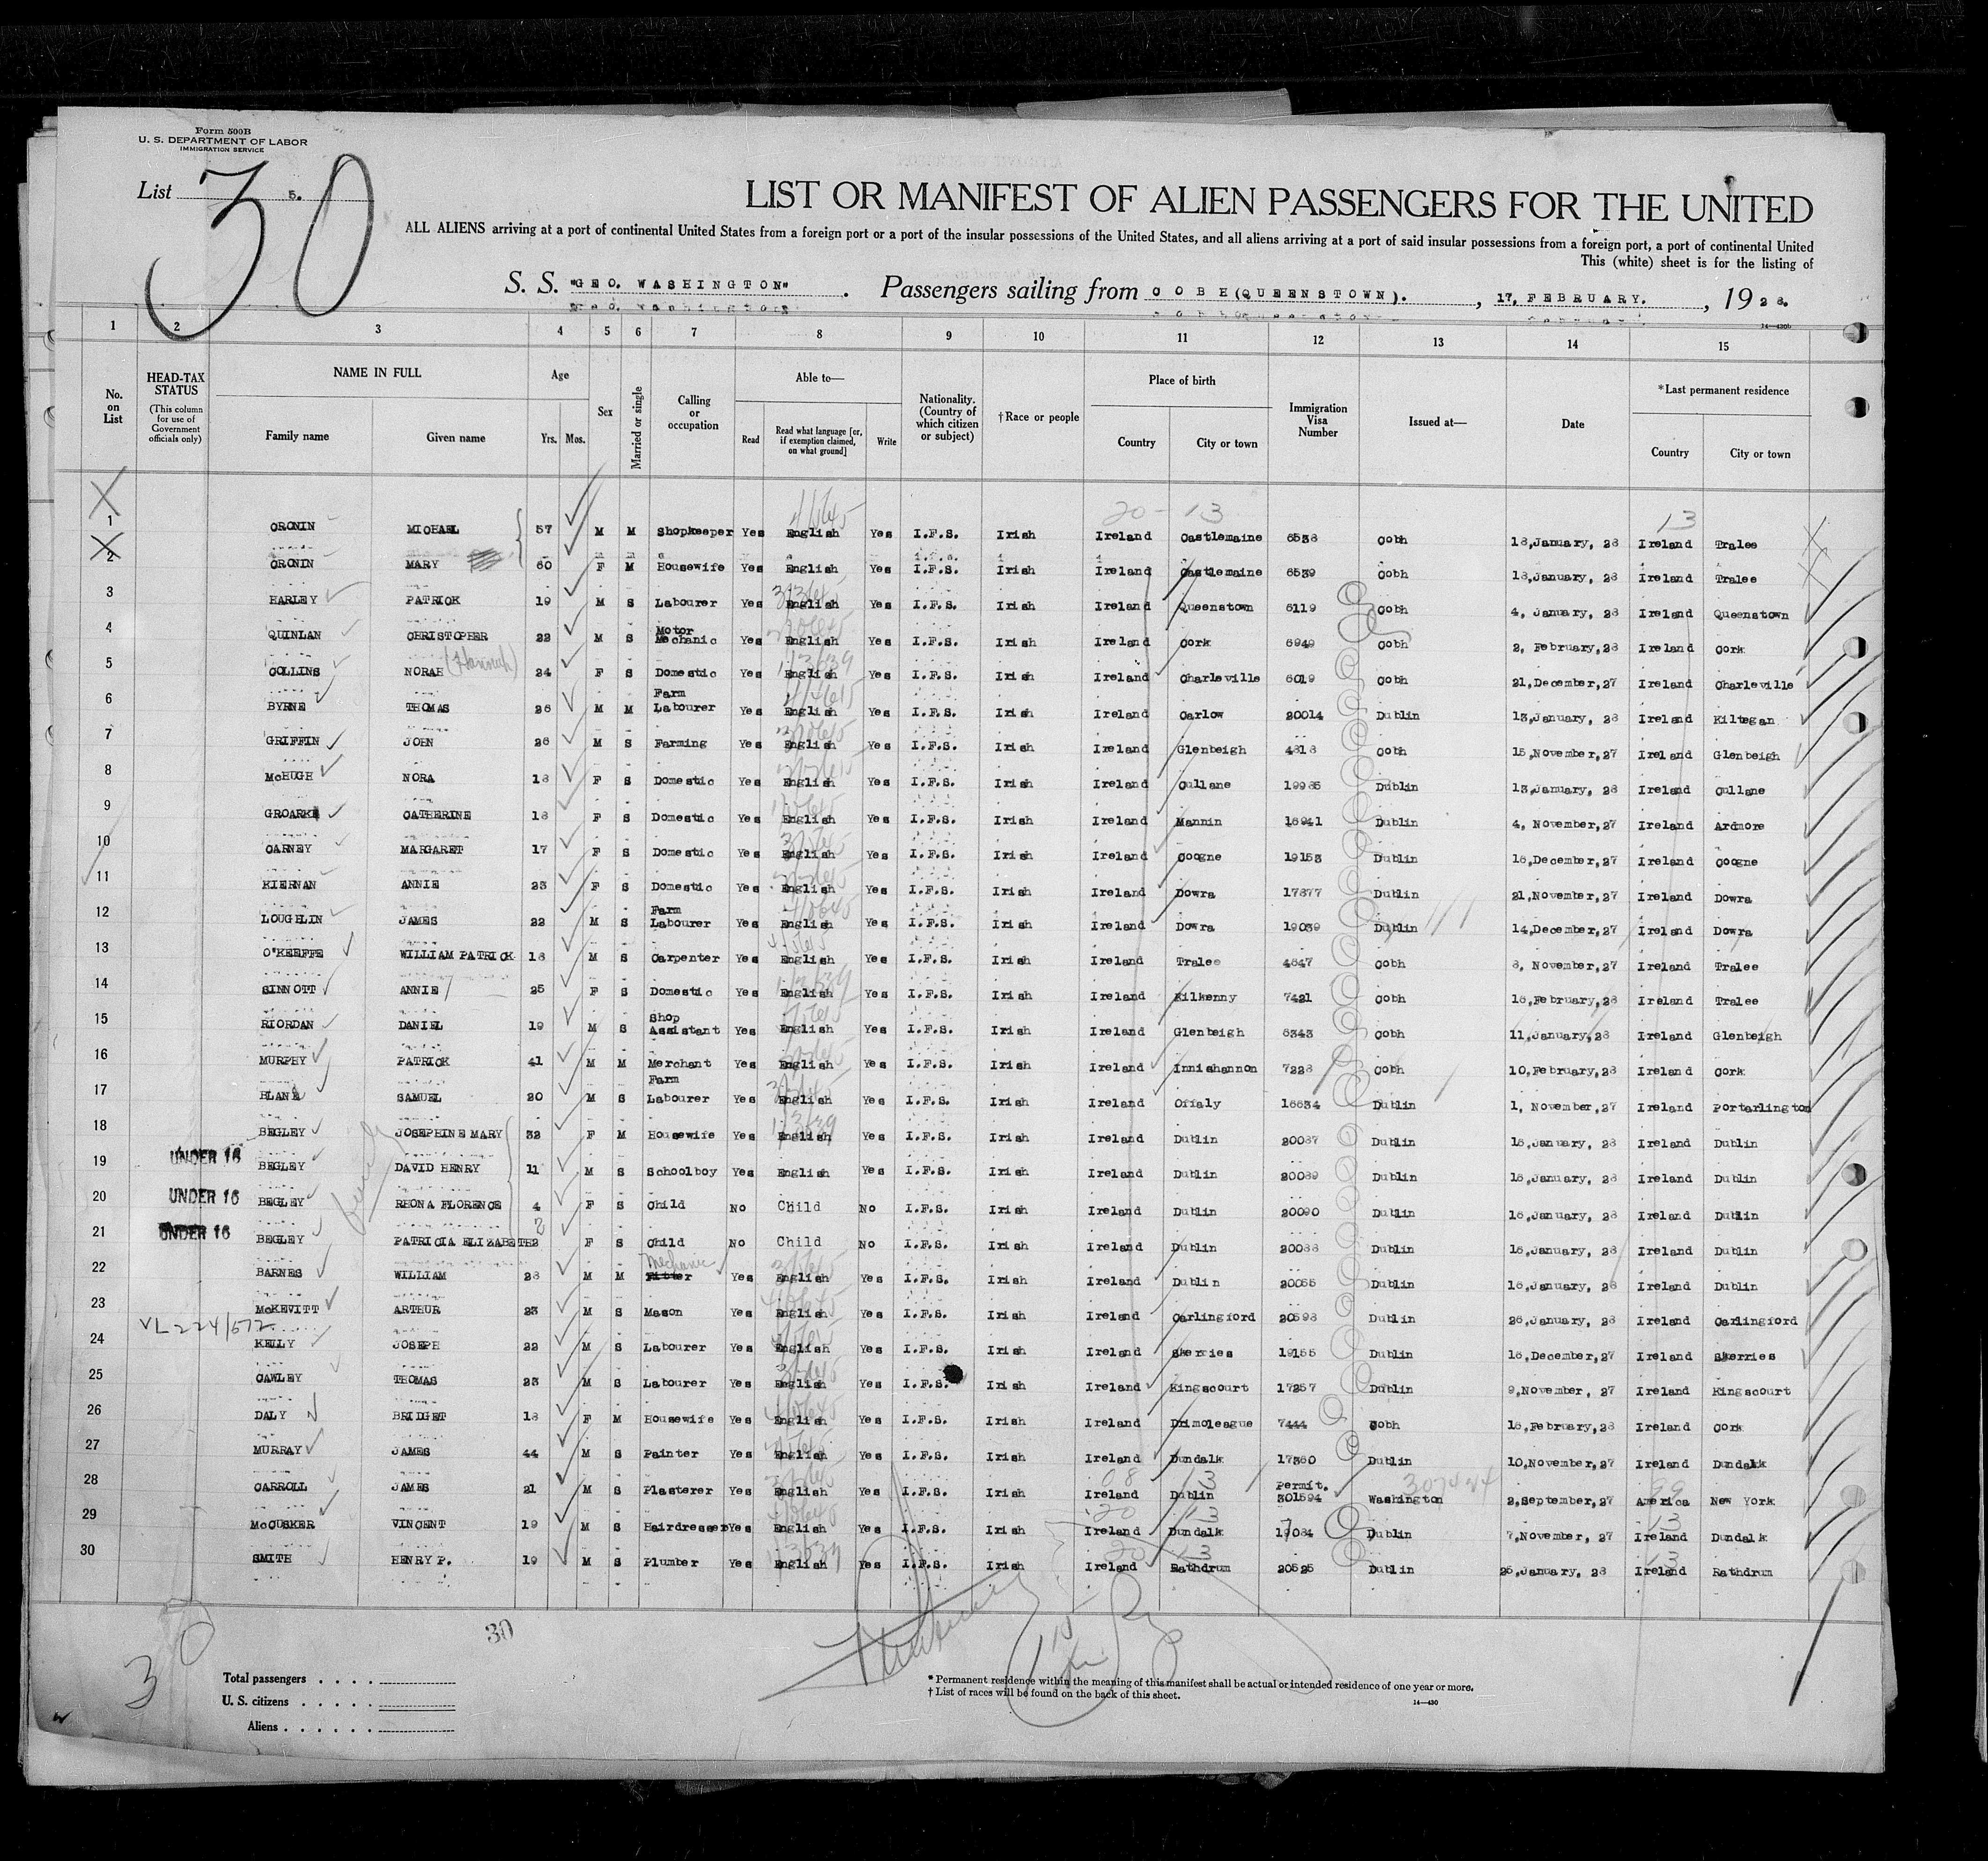 Form 500B
U. S. DEPARTMENT OF LABOR
IMMIGRATION SERVICE
List 5.
30
LIST OR MANIFEST OF ALIEN PASSENGERS FOR THE UNITED
ALL ALIENS arriving at a port of continental United States from a foreign port or a port of the insular possessions of the United States, and all aliens arriving at a port of said insular possessions from a foreign port, a port of continental United
This (white) sheet is for the listing of
S. S. "GEO. WASHINGTON". Passengers sailing from COBH(QUEENSTOWN)., 17, FEBRUARY., 1928.
14—430b
1 2 3 4 5 6 7 8 9 10 11 12 13 14 15
No. on List
HEAD-TAX STATUS
(This column for use of Government officials only)
NAME IN FULL
Family name Given name
Age
Yrs. Mos.
Sex
Married or single
Calling or occupation
Able to—
Read Read what language [or, if exemption claimed, on what ground] Write
Nationality. (Country of which citizen or subject)
†Race or people
Place of birth
Country City or town
Immigration Visa Number
Issued at—
Date
*Last permanent residence
Country City or town
20 - 13 13
1 CRONIN MICHAEL 57 M M Shopkeeper Yes English Yes I.F.S. Irish Ireland Castlemaine 6538 Cobh 18,January, 28 Ireland Tralee
2 CRONIN MARY 60 F M Housewife Yes English Yes I.F.S. Irish Ireland Castlemaine 6539 Cobh 18,January, 28 Ireland Tralee
3 HARLEY PATRICK 19 M S Labourer Yes English Yes I.F.S. Irish Ireland Queenstown 6119 Cobh 4, January, 28 Ireland Queenstown
4 QUINLAN CHRISTOPHER 22 M S Motor Mechanic Yes English Yes I.F.S. Irish Ireland Cork 6949 Cobh 2, February,28 Ireland Cork
5 COLLINS NORAH (Hannah) 24 F S Domestic Yes English Yes I.F.S. Irish Ireland Charleville 6019 Cobh 21,December,27 Ireland Charleville
6 BYRNE THOMAS 26 M M Farm Labourer Yes English Yes I.F.S. Irish Ireland Carlow 20014 Dublin 13,January, 28 Ireland Kiltegan
7 GRIFFIN JOHN 26 M S Farming Yes English Yes I.F.S. Irish Ireland Glenbeigh 4818 Cobh 15,November,27 Ireland Glenbeigh
8 McHUGH NORA 18 F S Domestic Yes English Yes I.F.S. Irish Ireland Cullane 19985 Dublin 13,January, 28 Ireland Cullane
9 GROARKE CATHERINE 18 F S Domestic Yes English Yes I.F.S. Irish Ireland Mannin 16941 Dublin 4, November,27 Ireland Ardmore
10 CARNEY MARGARET 17 F S Domestic Yes English Yes I.F.S. Irish Ireland Coogne 19153 Dublin 16,December,27 Ireland Coogne
11 KIERNAN ANNIE 23 F S Domestic Yes English Yes I.F.S. Irish Ireland Dowra 17877 Dublin 21,November,27 Ireland Dowra
12 LOUGHLIN JAMES 22 M S Farm Labourer Yes English Yes I.F.S. Irish Ireland Dowra 19039 Dublin 14,December,27 Ireland Dowra
13 O'KEEFFE WILLIAM PATRICK 18 M S Carpenter Yes English Yes I.F.S. Irish Ireland Tralee 4647 Cobh 8, November,27 Ireland Tralee
14 SINNOTT ANNIE 25 F S Domestic Yes English Yes I.F.S. Irish Ireland Kilkenny 7421 Cobh 16,February,28 Ireland Tralee
15 RIORDAN DANIEL 19 M S Shop Assistant Yes English Yes I.F.S. Irish Ireland Glenbeigh 6343 Cobh 11,January,28 Ireland Glenbeigh
16 MURPHY PATRICK 41 M M Merchant Yes English Yes I.F.S. Irish Ireland Innishannon 7228 Cobh 10,February,28 Ireland Cork
17 BLANE SAMUEL 20 M S Farm Labourer Yes English Yes I.F.S. Irish Ireland Offaly 16634 Dublin 1, November,27 Ireland Portarlington
18 BEGLEY JOSEPHINE MARY 32 F M Housewife Yes English Yes I.F.S. Irish Ireland Dublin 20087 Dublin 16,January, 28 Ireland Dublin
19 UNDER 16 BEGLEY DAVID HENRY 11 M S Schoolboy Yes English Yes I.F.S. Irish Ireland Dublin 20089 Dublin 16,January, 28 Ireland Dublin
20 UNDER 16 BEGLEY RHONA FLORENCE 4 F S Child No Child No I.F.S. Irish Ireland Dublin 20090 Dublin 16,January, 28 Ireland Dublin
21 UNDER 16 BEGLEY PATRICIA ELIZABETH 2 F S Child No Child No I.F.S. Irish Ireland Dublin 20088 Dublin 16,January, 28 Ireland Dublin
22 BARNES WILLIAM 28 M M Mechanic Fitter Yes English Yes I.F.S. Irish Ireland Dublin 20055 Dublin 16,January, 28 Ireland Dublin
23 McKEVITT ARTHUR 23 M S Mason Yes English Yes I.F.S. Irish Ireland Carlingford 20598 Dublin 26,January, 28 Ireland Carlingford
VL 224/572
24 KELLY JOSEPH 22 M S Labourer Yes English Yes I.F.S. Irish Ireland Skerries 19155 Dublin 16,December,27 Ireland Skerries
25 CAWLEY THOMAS 23 M S Labourer Yes English Yes I.F.S. Irish Ireland Kingscourt 17257 Dublin 9,November, 27 Ireland Kingscourt
26 DALY BRIDGET 18 F M Housewife Yes English Yes I.F.S. Irish Ireland Drimoleague 7444 Cobh 16,February,28 Ireland Cork
27 MURRAY JAMES 44 M S Painter Yes English Yes I.F.S. Irish Ireland Dundalk 17360 Dublin 10,November,27 Ireland Dundalk
28 CARROLL JAMES 21 M S Plasterer Yes English Yes I.F.S. Irish Ireland Dublin Permit. 301594 Washington 2,September,27 America New York
29 McCUSKER VINCENT 19 M S Hairdresser Yes English Yes I.F.S. Irish Ireland Dundalk 17084 Dublin 7,November, 27 Ireland Dundalk
30 SMITH HENRY P. 19 M S Plumber Yes English Yes I.F.S. Irish Ireland Rathdrum 20525 Dublin 25,January, 28 Ireland Rathdrum
30
30
Total passengers
U. S. citizens
Aliens
* Permanent residence within the meaning of this manifest shall be actual or intended residence of one year or more.
† List of races will be found on the back of this sheet.
14—430